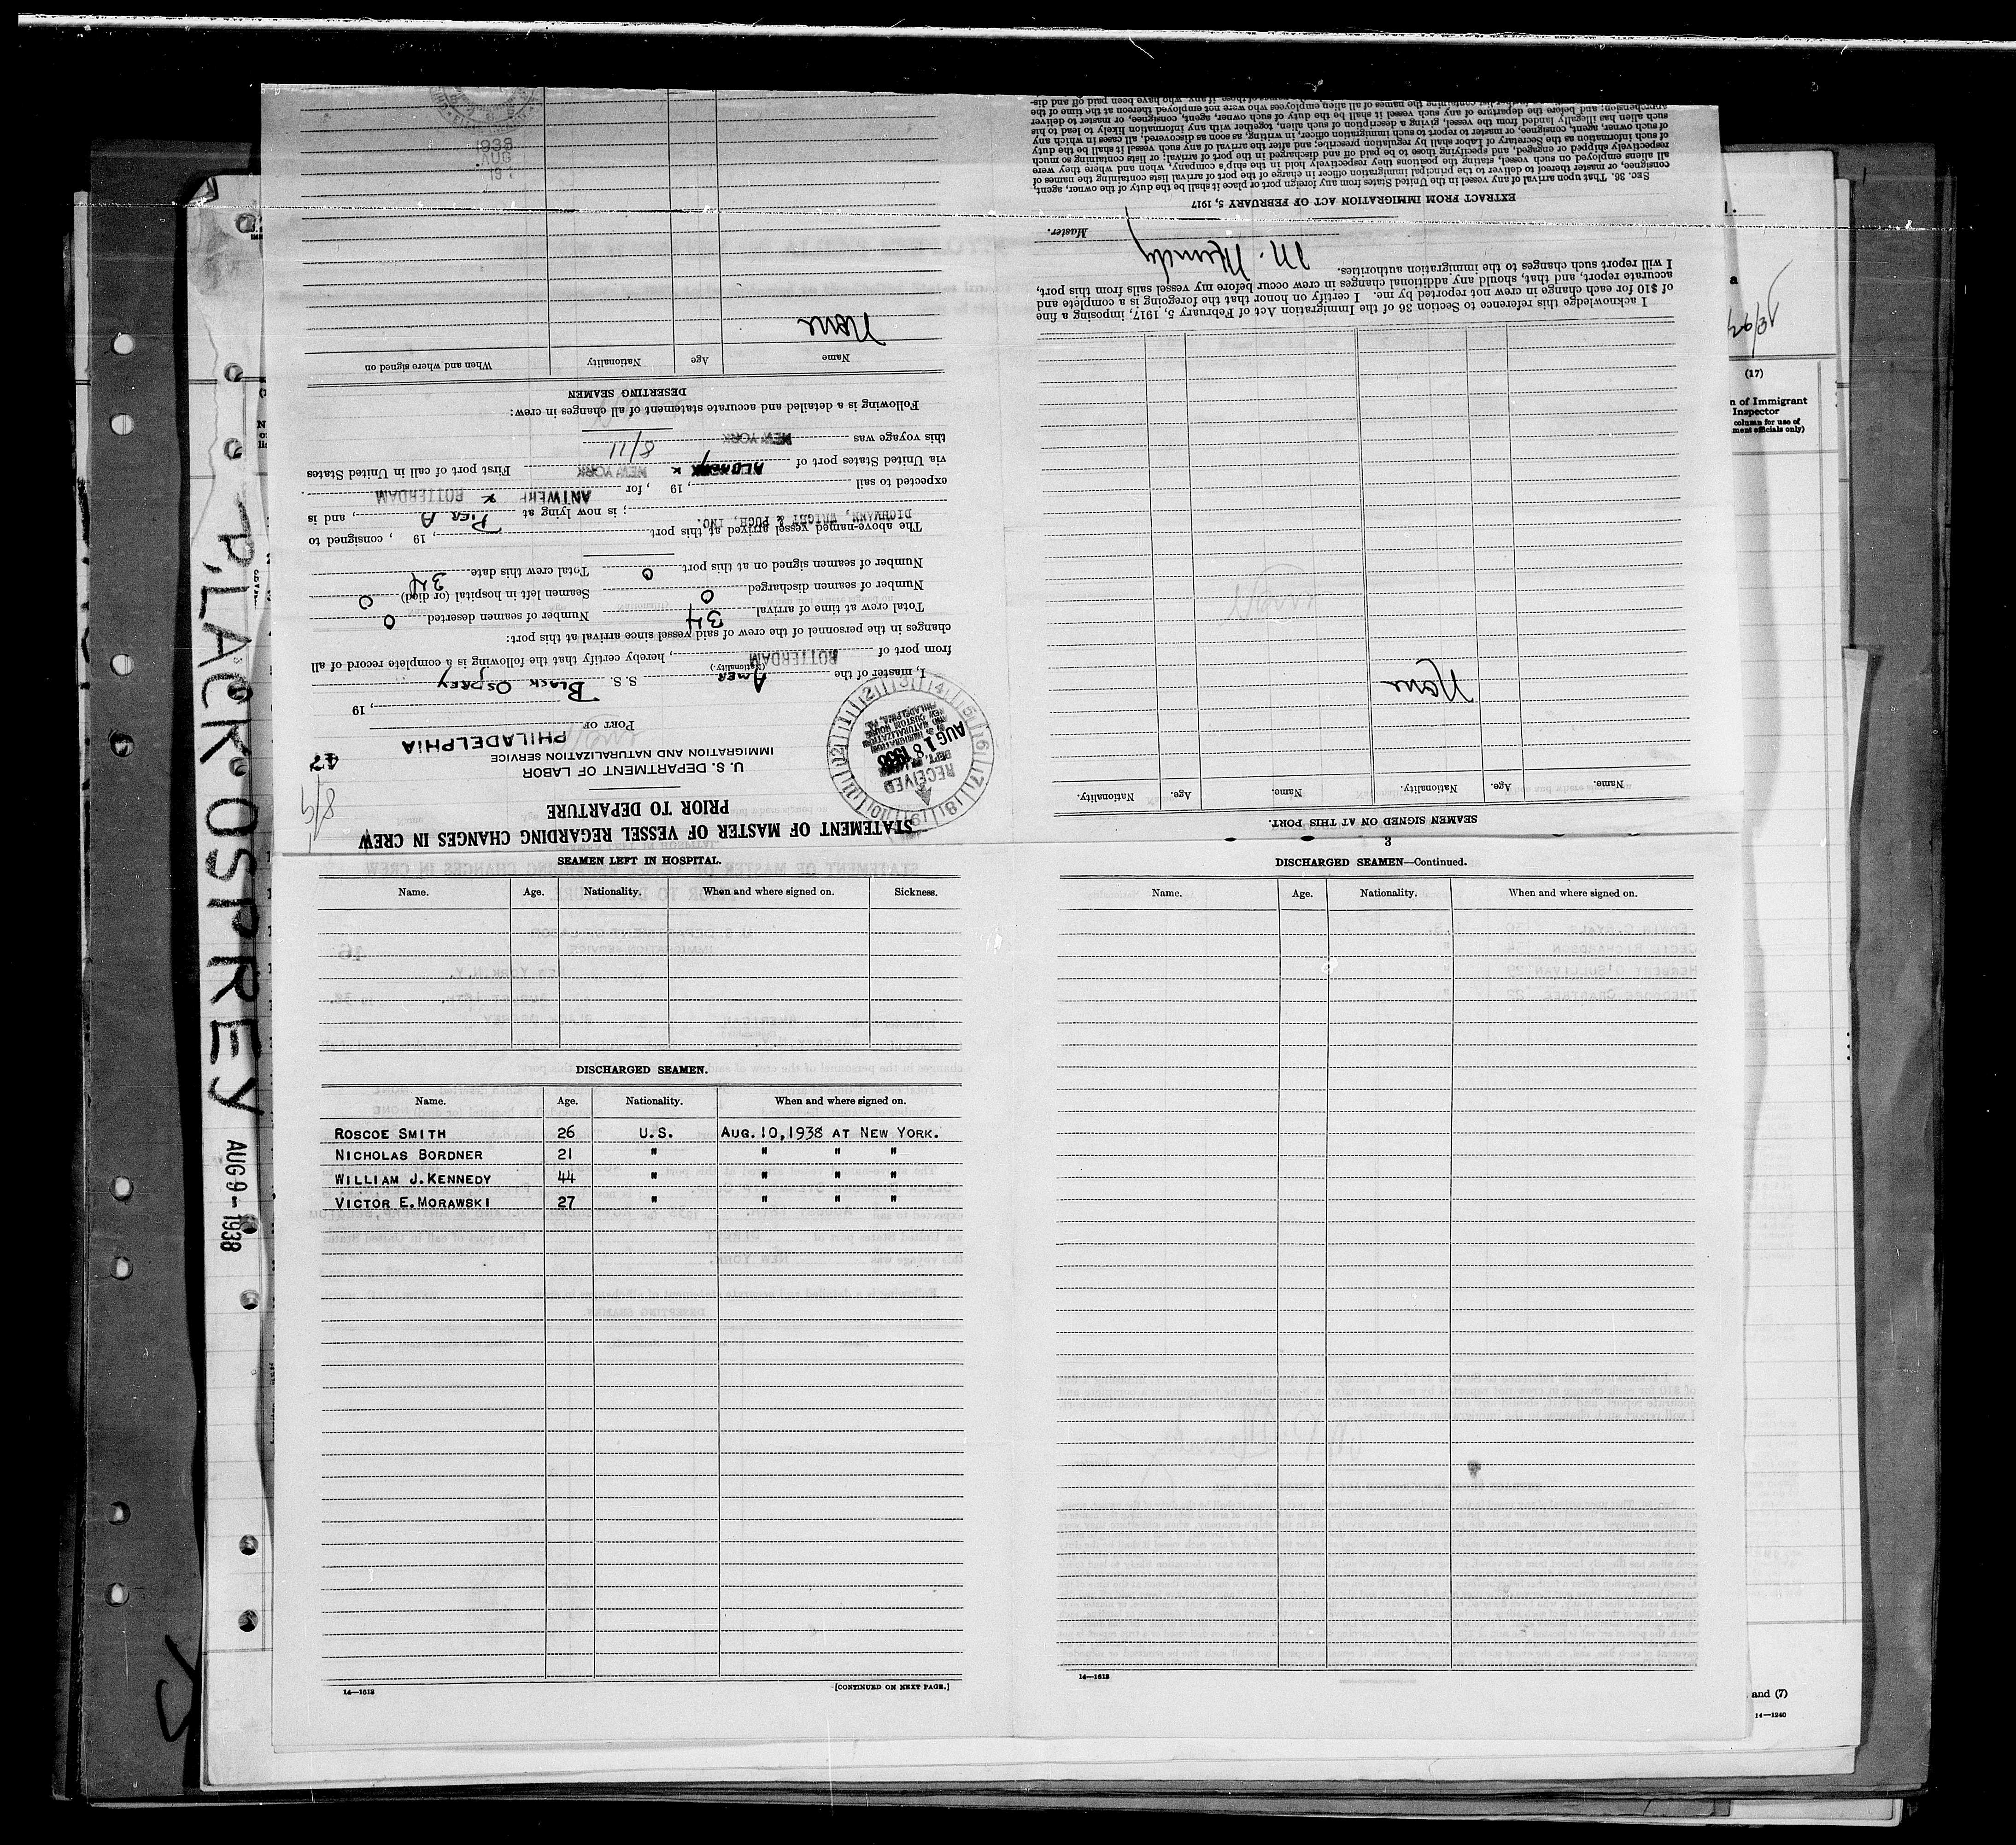 BLACK OSPREY AUG 9-1938
STATEMENT OF MASTER OF VESSEL REGARDING CHANGES IN CREW
PRIOR TO DEPARTURE
U. S. DEPARTMENT OF LABOR
IMMIGRATION AND NATURALIZATION SERVICE
47
8/9
PORT OF PHILADELPHIA
, 19
RECEIVED
AUG 18 1938
I, master of the AMER S. S. BLACK OSPREY
(Nationality.)
from port of ROTTERDAM, hereby certify that the following is a complete record of all
changes in the personnel of the crew of said vessel since arrival at this port:
Total crew at time of arrival 34 Number of seamen deserted 0
Number of seamen discharged 0 Seamen left in hospital (or died) 0
Number of seamen signed on at this port 0 Total crew this date 34
The above-named vessel arrived at this port , 19 , consigned to
DICHMANN, WRIGHT & PUGH, INC. ; is now lying at PIER A , and is
expected to sail , 19 , for ANTWERP & ROTTERDAM
via United States port of NEW YORK First port of call in United States
this voyage was NEW YORK 8/11
Following is a detailed and accurate statement of all changes in crew:
DESERTING SEAMEN
Name Age Nationality When and where signed on
None
AUG
1938
SEAMEN SIGNED ON AT THIS PORT.
Name. Age. Nationality. Name. Age. Nationality.
None
I acknowledge this reference to Section 36 of the Immigration Act of February 5, 1917, imposing a fine
of $10 for each change in crew not reported by me. I certify on honor that the foregoing is a complete and
accurate report, and that, should any additional changes in crew occur before my vessel sails from this port,
I will report such changes to the immigration authorities.
Master.
EXTRACT FROM IMMIGRATION ACT OF FEBRUARY 5, 1917
SEC. 36. That upon arrival of any vessel in the United States from any foreign port or place it shall be the duty of the owner, agent,
consignee, or master thereof to deliver to the principal immigration officer in charge of the port of arrival lists containing the names of
all aliens employed on such vessel, stating the positions they respectively hold in the ship's company, when and where they were
respectively shipped or engaged, and specifying those to be paid off and discharged in the port of arrival; or lists containing so much
of such information as the Secretary of Labor shall by regulation prescribe; and after the arrival of any such vessel it shall be the duty
of such owner, agent, consignee, or master to report to such immigration officer, in writing, as soon as discovered, all cases in which any
such alien has illegally landed from the vessel, giving a description of such alien, together with any information likely to lead to his
apprehension; and before the departure of any such vessel it shall be the duty of such owner, agent, consignee, or master to deliver
containing the names of all alien employees who were not employed thereon at the time of the
SEAMEN LEFT IN HOSPITAL.
Name. Age. Nationality. When and where signed on. Sickness.
DISCHARGED SEAMEN.
Name. Age. Nationality. When and where signed on.
ROSCOE SMITH 26 U.S. AUG. 10, 1938 AT NEW YORK.
NICHOLAS BORDNER 21 " " " "
WILLIAM J. KENNEDY 44 " " " "
VICTOR E. MORAWSKI 27 " " " "
14—1613 [CONTINUED ON NEXT PAGE.]
3
DISCHARGED SEAMEN—Continued.
Name. Age. Nationality. When and where signed on.
14—1613
(17)
n of Immigrant
Inspector
column for use of
ment officials only)
and (7)
14—1240